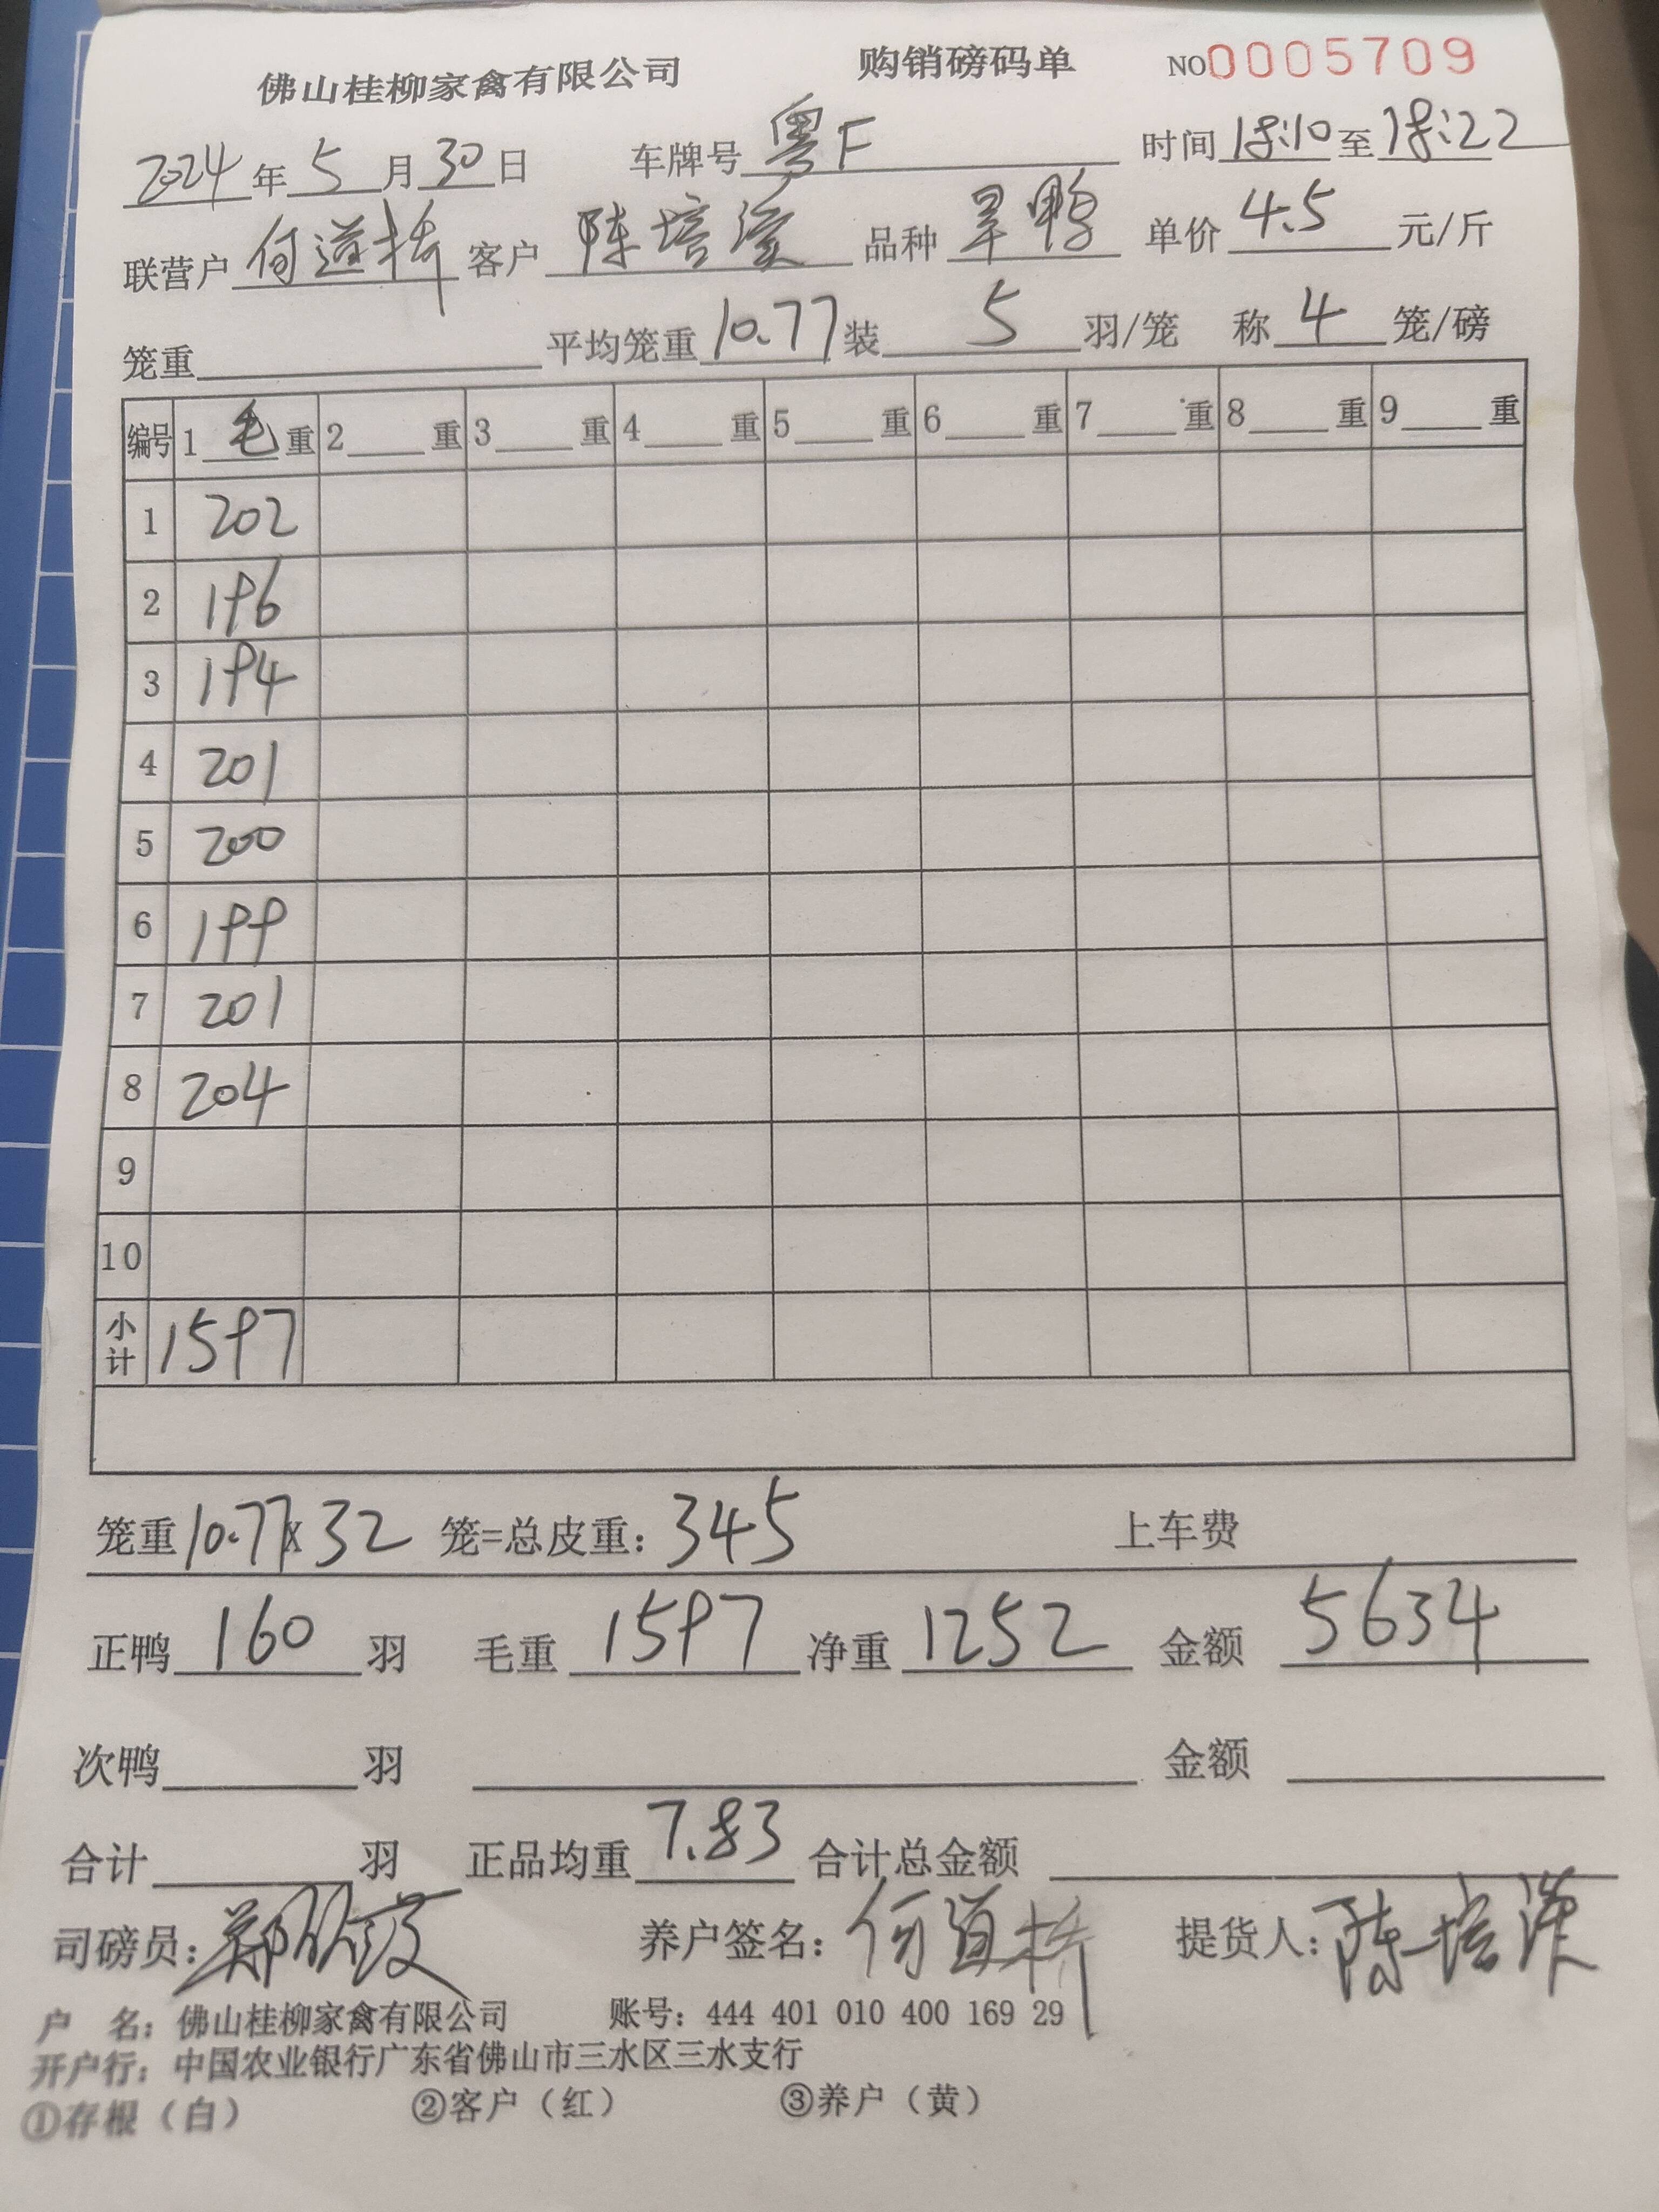 佛山桂柳家禽有限公司 购销磅码单 NO0005709
2024年5月30日 车牌号 粤F 时间 18:10 至 18:22
联营户 何道桥 客户 陈培 品种 旱鸭 单价 4.5 元/斤
笼重 平均笼重 10.77 装 5 羽/笼 称 4 笼/磅
编号 1 毛 重 2 重 3 重 4 重 5 重 6 重 7 重 8 重 9 重
1 202
2 196
3 194
4 201
5 200
6 199
7 201
8 204
9
10
小计 1597
笼重 10.77 X 32 笼=总皮重: 345 上车费
正鸭 160 羽 毛重 1597 净重 1252 金额 5634
次鸭 羽 金额
合计 羽 正品均重 7.83 合计总金额
司磅员: 郑 养户签名: 何道桥 提货人: 陈培
户 名: 佛山桂柳家禽有限公司 账号: 444 401 010 400 169 29
开户行: 中国农业银行广东省佛山市三水区三水支行
①存根（白） ②客户（红） ③养户（黄）